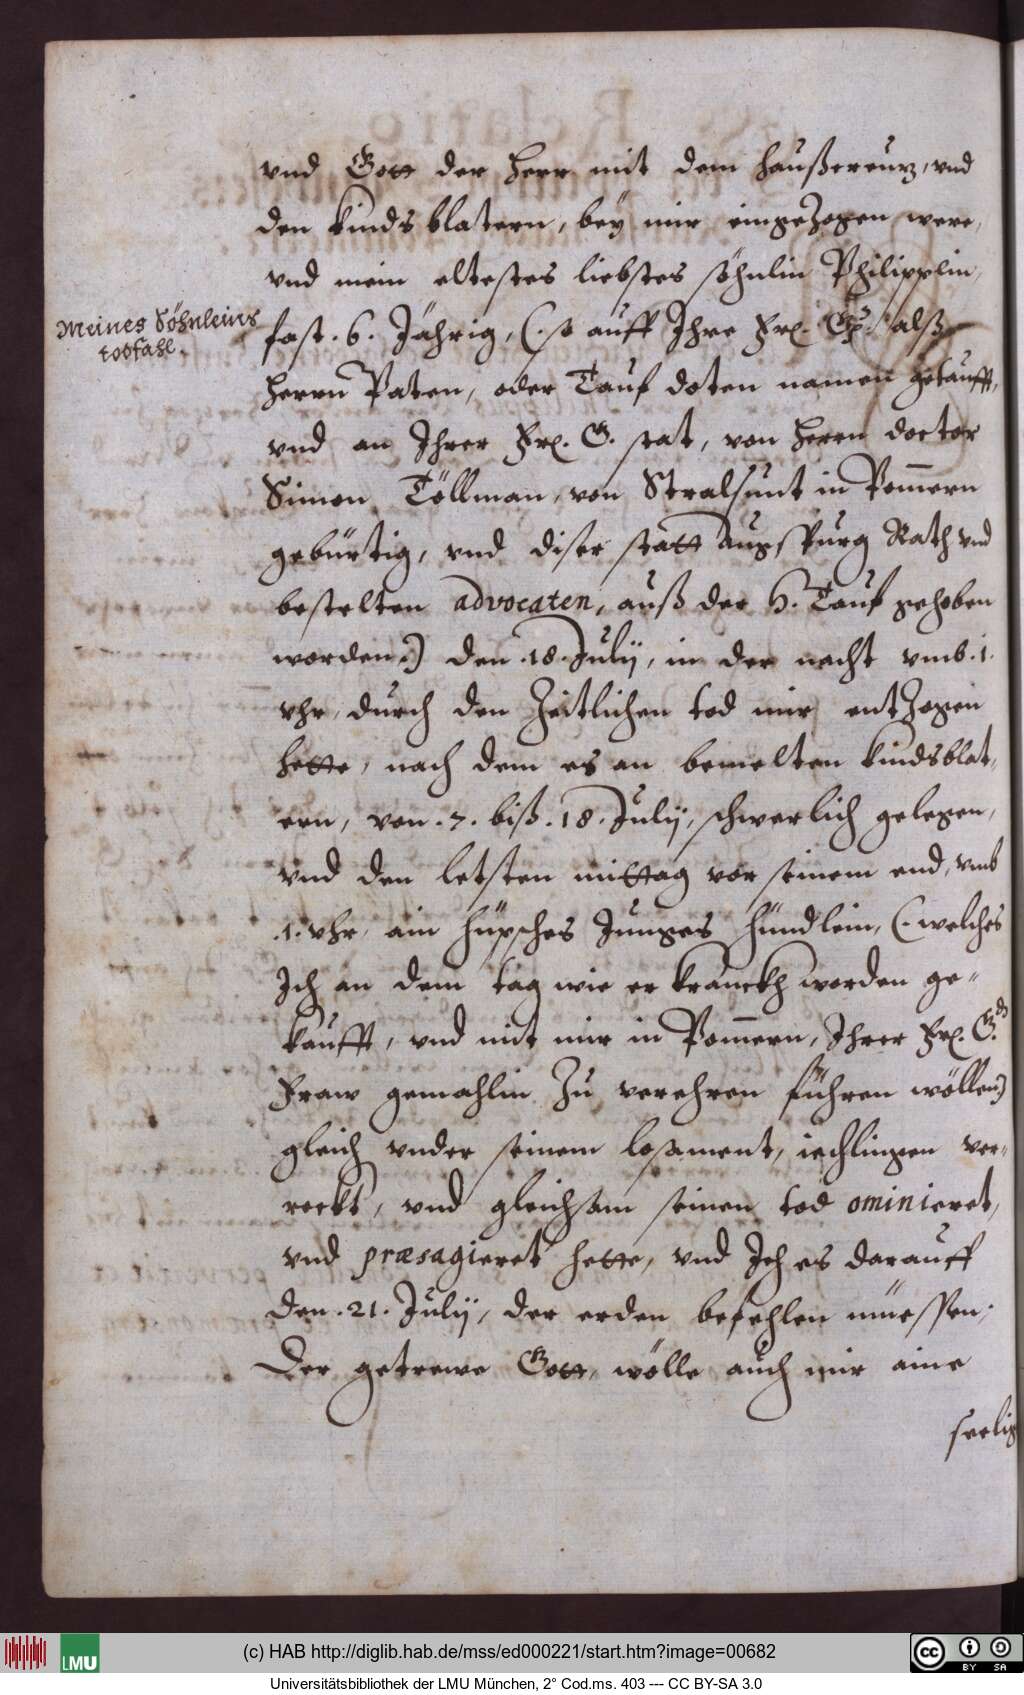 vnd Gott der Herr mit dem haußcreutz, vnd
den kindsblatern, bey mir eingezogen were,
vnd mein eltestes liebstes söhnlin Philipplin,
Meines Söhnleins
todfahl.
fast .6. Jährig, (.so auff Ihre Frl. Gn. alß
herrn Paten, oder Tauf doten namen getaufft,
vnd an Ihrer Frl. G. stat, von herrn doctor
Simon Töllman, von Stralsunt in Pom̄ern
gebürtig, vnd diser statt Augspurg Rath vnd
bestelten advocaten, auß der H. Tauf gehoben
worden.) den .18. Julij, in der nacht vmb .1.
vhr, durch den Zeitlichen tod mir entzogen
hette, nach dem es an bemelten kindsblat,
ern, von .7. biß .18. Julij, schwerlich gelegen,
vnd den letsten mittag vor seinem end, vmb
.1. vhr, ain hüpsches Junges hündlein, (.welches
Ich an dem tag wie er kranckh worden ge=
kaufft, vnd mit mir in Pom̄ern, Ihrer Frl. G.
Fraw gemahlin Zu verehren führen wöllen.)
gleich vnder seinem losament, iechlingen ver=
reckt, vnd gleichsam seinen tod ominieret,
vnd præsagieret hette, vnd Ich es darauff
den .21. Julij, der erden befehlen müessen.
Der getrewe Gott, wölle auch mir aine
seelig
(c) HAB http://diglib.hab.de/mss/ed000221/start.htm?image=00682
LMU
BY SA
Universitätsbibliothek der LMU München, 2° Cod.ms. 403 --- CC BY-SA 3.0